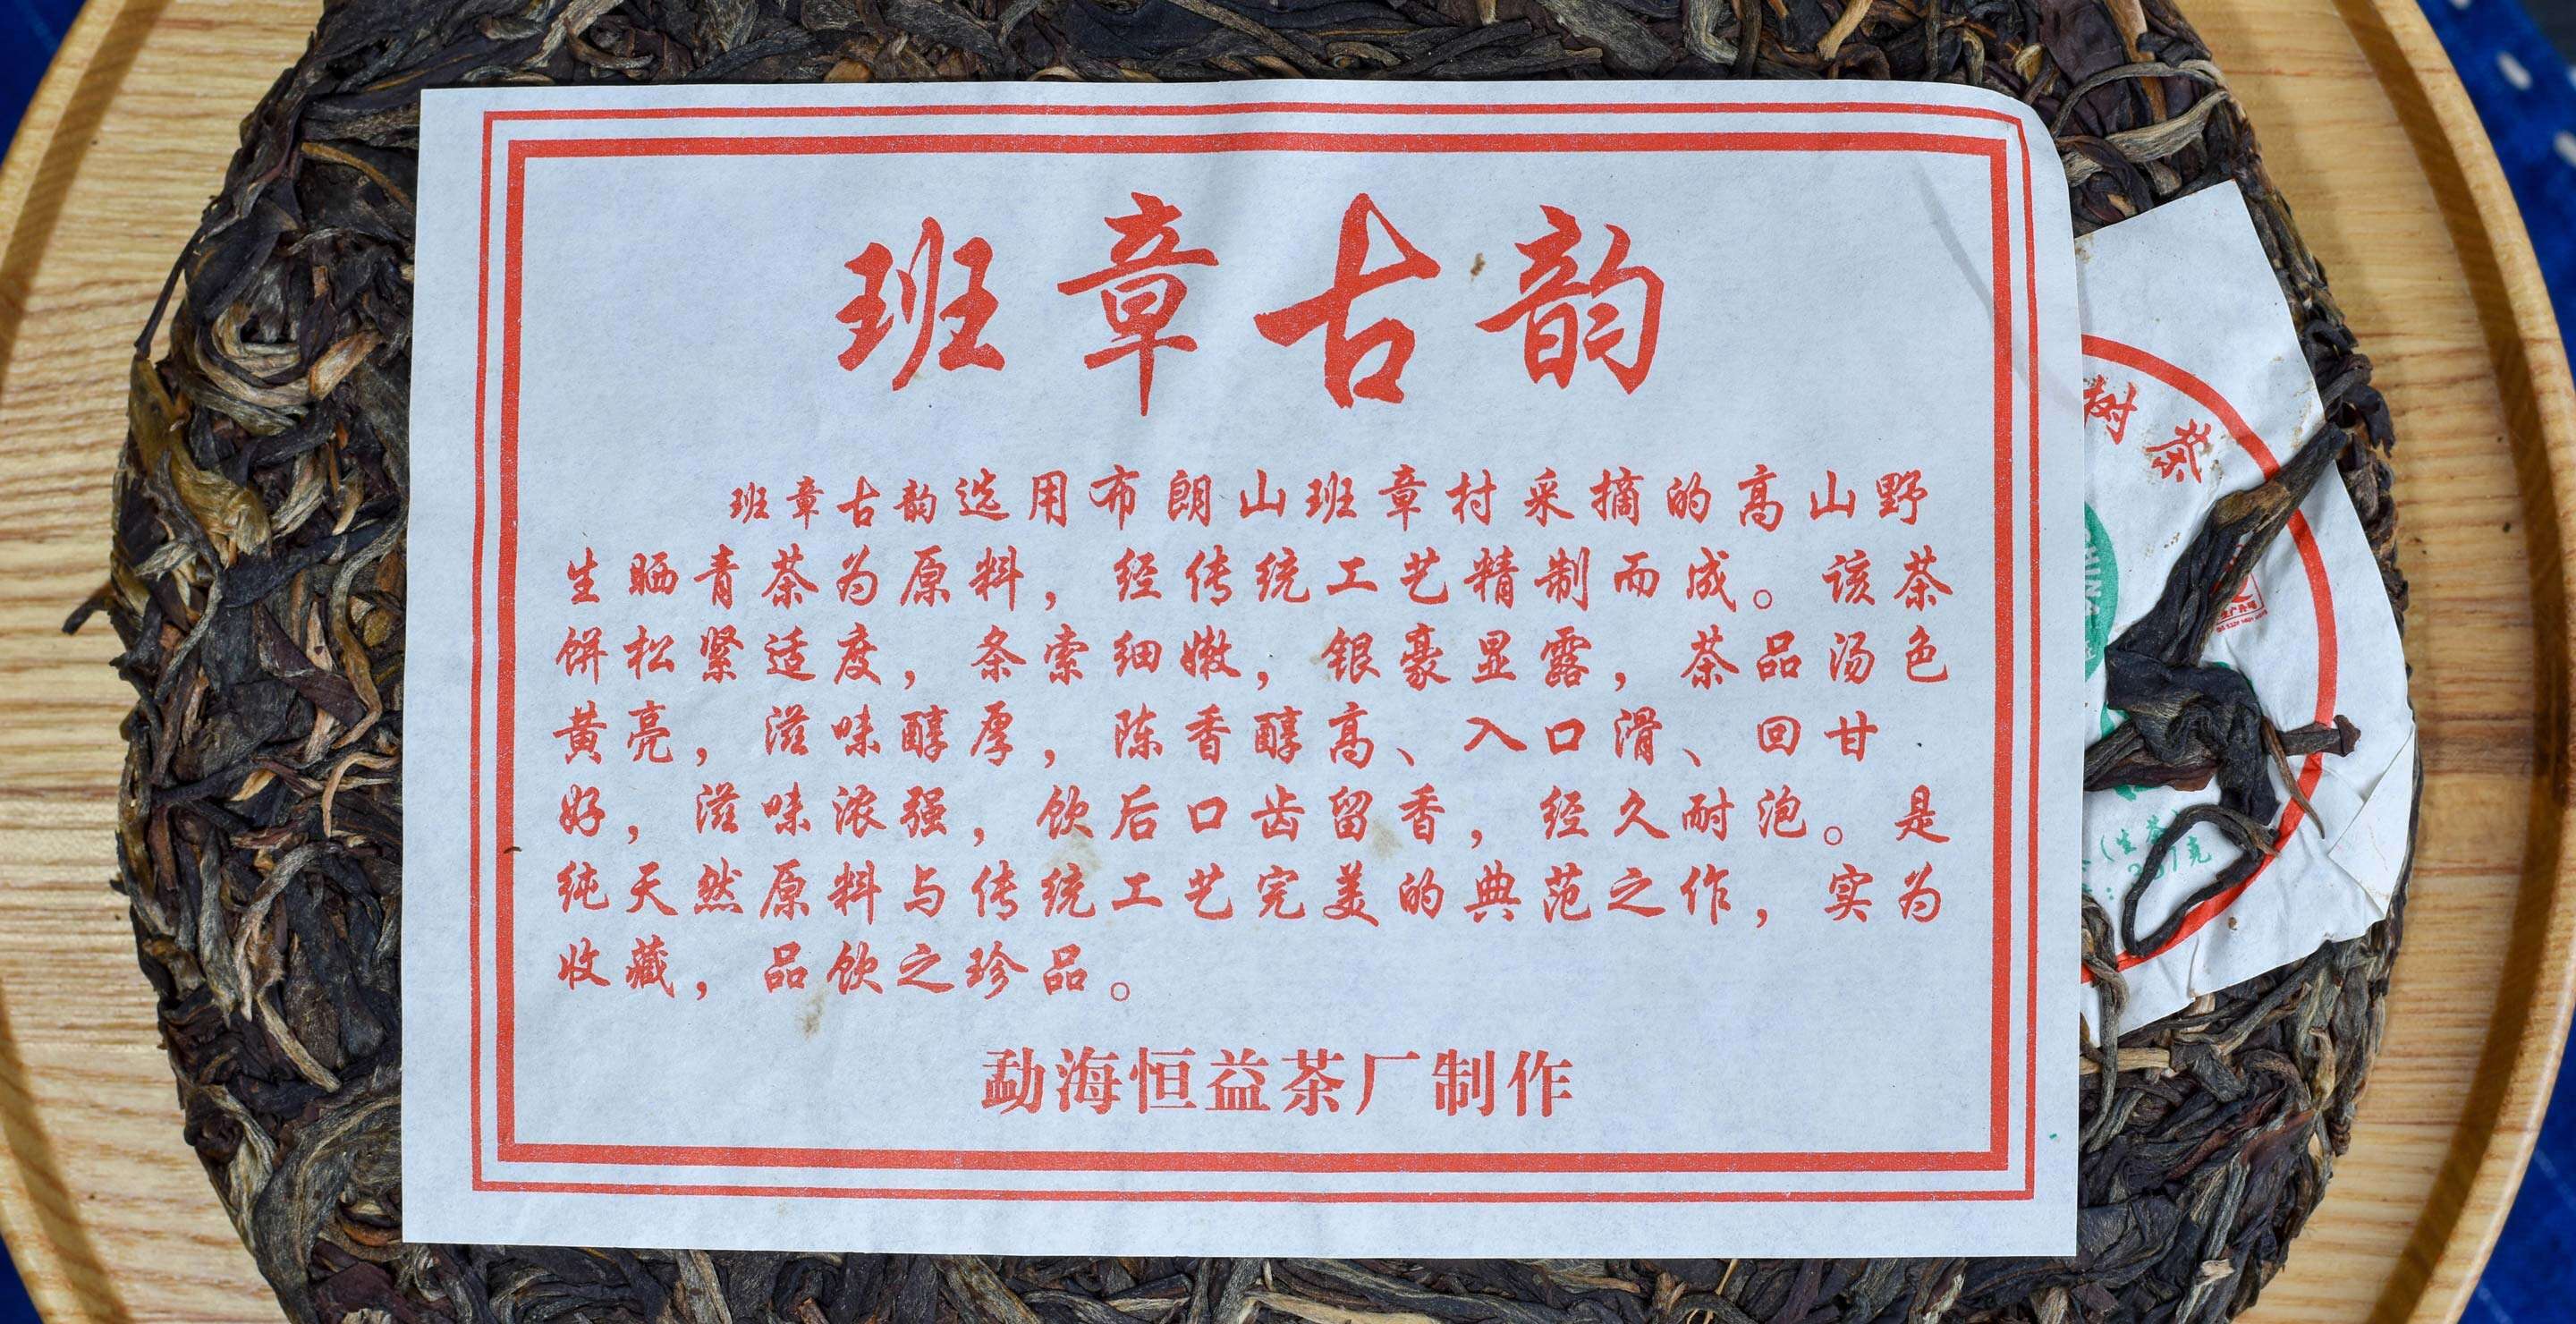 班章古韵
班章古韵选用布朗山班章村采摘的高山野
生晒青茶为原料，经传统工艺精制而成。该茶
饼松紧适度，条索细嫩，银豪显露，茶品汤色
黄亮，滋味醇厚，陈香醇高、入口滑、回甘
好，滋味浓强，饮后口齿留香，经久耐泡。是
纯天然原料与传统工艺完美的典范之作，实为
收藏，品饮之珍品。
勐海恒益茶厂制作
树茶
(生茶
克